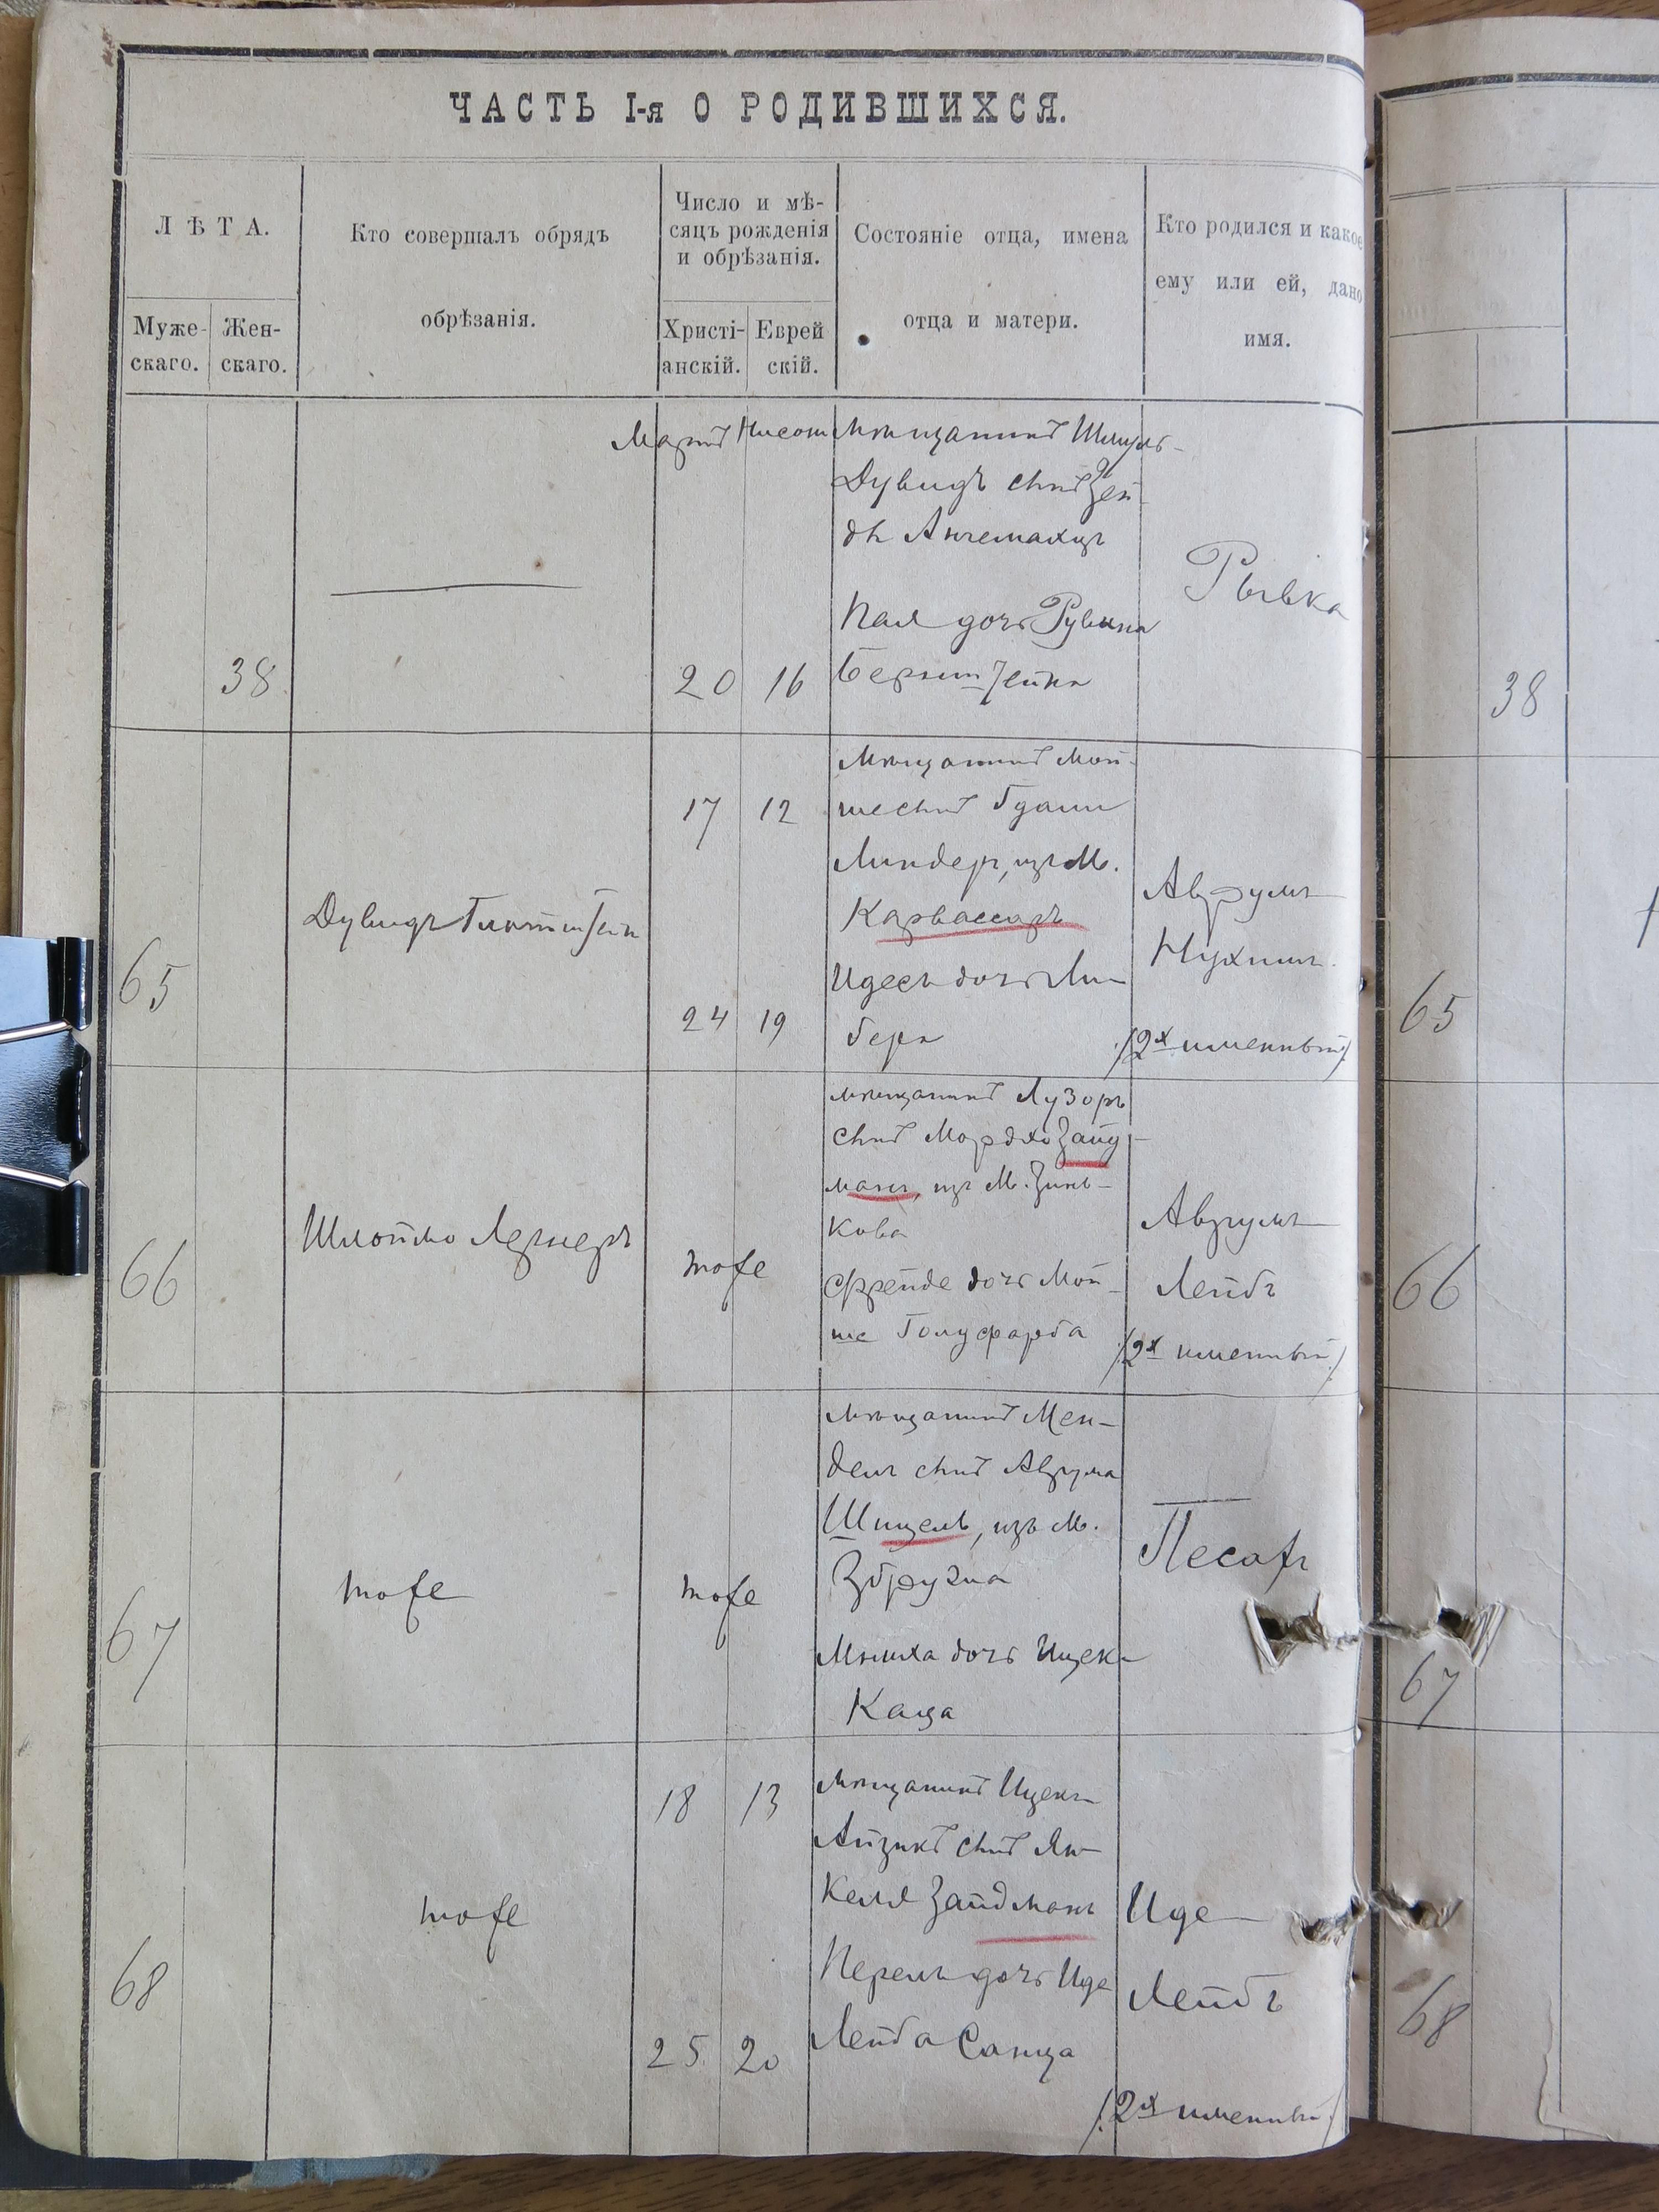 ЧАСТЬ I-я О РОДИВШИХСЯ.
ЛѢТА.
Муже-
скаго.
Жен-
скаго.
Кто совершалъ обрядъ
обрѣзанія.
Число и мѣ-
сяцъ рожденія
и обрѣзанія.
Христі-
анскій.
Еврей
скій.
Состояніе отца, имена
отца и матери.
Кто родился и какое
ему или ей, дано
имя.
38
Мартъ
20
Нисонъ
16
Мѣщанинъ Шмуль-
Дувидъ сынъ Зей-
дѣ
доче Рувина
Рывка
38
65
Дувидъ
17 12
24 19
Мѣщанинъ Мой-
ше сынъ
Линдеръ, изъ М.
Карвассаръ
Идесъ дочь Ли-
бера
Аврумъ
Нухимъ
/2х именный/
65
66
Шлоймо Лернеръ
тоже
мѣщанинъ Лузоръ
сынъ Мордхо Зайд-
манъ, изъ М. Зинь-
кова
Фрейде дочь Мой-
ше Голуфарба
Аврумъ
Лейбъ
/2х именный/
66
67
тоже
тоже
Мѣщанинъ Мен-
дель сынъ Аврума
Шицель, изъ М.
Збруча
дочь Ицека
Каца
Песахъ
67
68
тоже
18 13
25 20
Мѣщанинъ Ицекъ-
Айзикъ сынъ Ян-
келя Зайдманъ
Перель дочь Иде
Лейба Санца
Иде
Лейбъ
/2х именный/
68